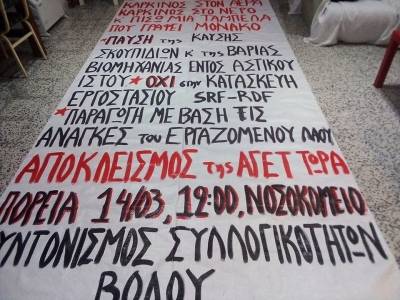 ΚΑΡΚΙΝΟΣ ΣΤΟΝ ΑΕΡΑ
ΚΑΡΚΙΝΟΣ ΣΤΟ ΝΕΡΟ
Κ ΠΙΣΩ ΜΙΑ ΤΑΜΠΕΛΑ
ΠΟΥ ΓΡΑΦΕΙ ΜΟΝΑΚΟ
*ΠΑΥΣΗ της ΚΑΥΣΗΣ
ΣΚΟΥΠΙΔΙΩΝ Κ της ΒΑΡΙΑΣ
ΒΙΟΜΗΧΑΝΙΑΣ ΕΝΤΟΣ ΑΣΤΙΚΟΥ
ΙΣΤΟΥ * ΟΧΙ στην ΚΑΤΑΣΚΕΥΗ
ΕΡΓΟΣΤΑΣΙΟΥ SRF-RDF
*ΠΑΡΑΓΩΓΗ ΜΕ ΒΑΣΗ ΤΙΣ
ΑΝΑΓΚΕΣ του ΕΡΓΑΖΟΜΕΝΟΥ ΛΑΟΥ
ΑΠΟΚΛΕΙΣΜΟΣ της ΑΓΕΤ ΤΩΡΑ
ΠΟΡΕΙΑ 14/03, 12:00, ΝΟΣΟΚΟΜΕΙΟ
ΣΥΝΤΟΝΙΣΜΟΣ ΣΥΛΛΟΓΙΚΟΤΗΤΩΝ
ΒΟΛΟΥ